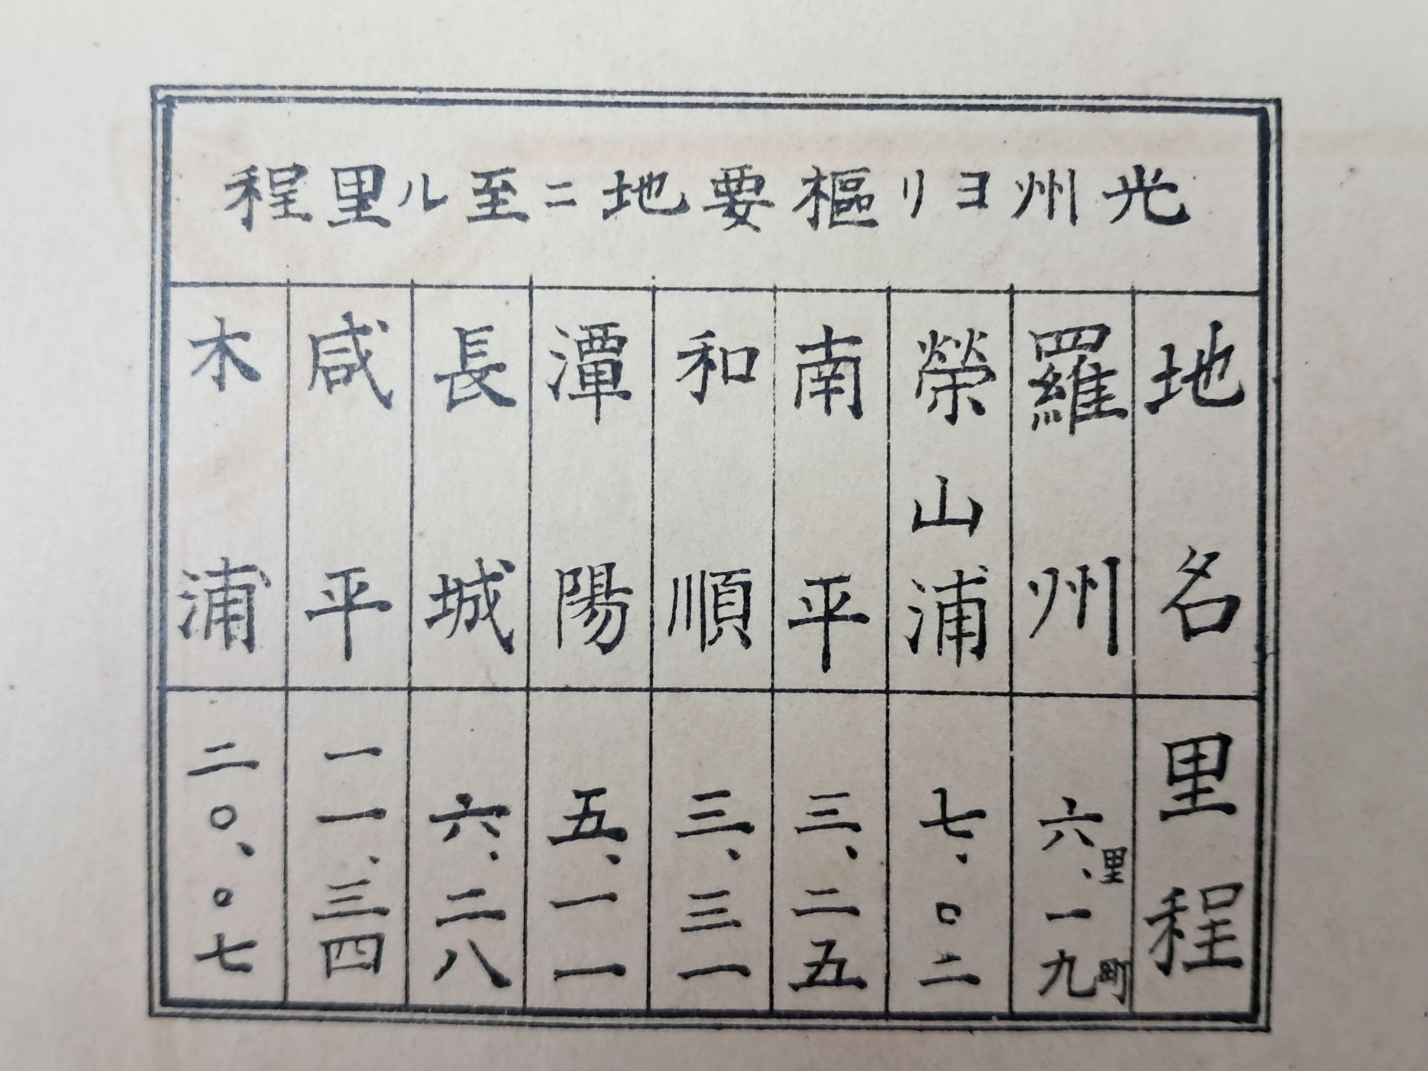 光州ヨリ樞要地ニ至ル里程
地名 里程
羅州 六里、一九町
榮山浦 七、〇二
南平 三、二五
和順 三、三一
潭陽 五、一一
長城 六、二八
咸平 一一、三四
木浦 二〇、〇七